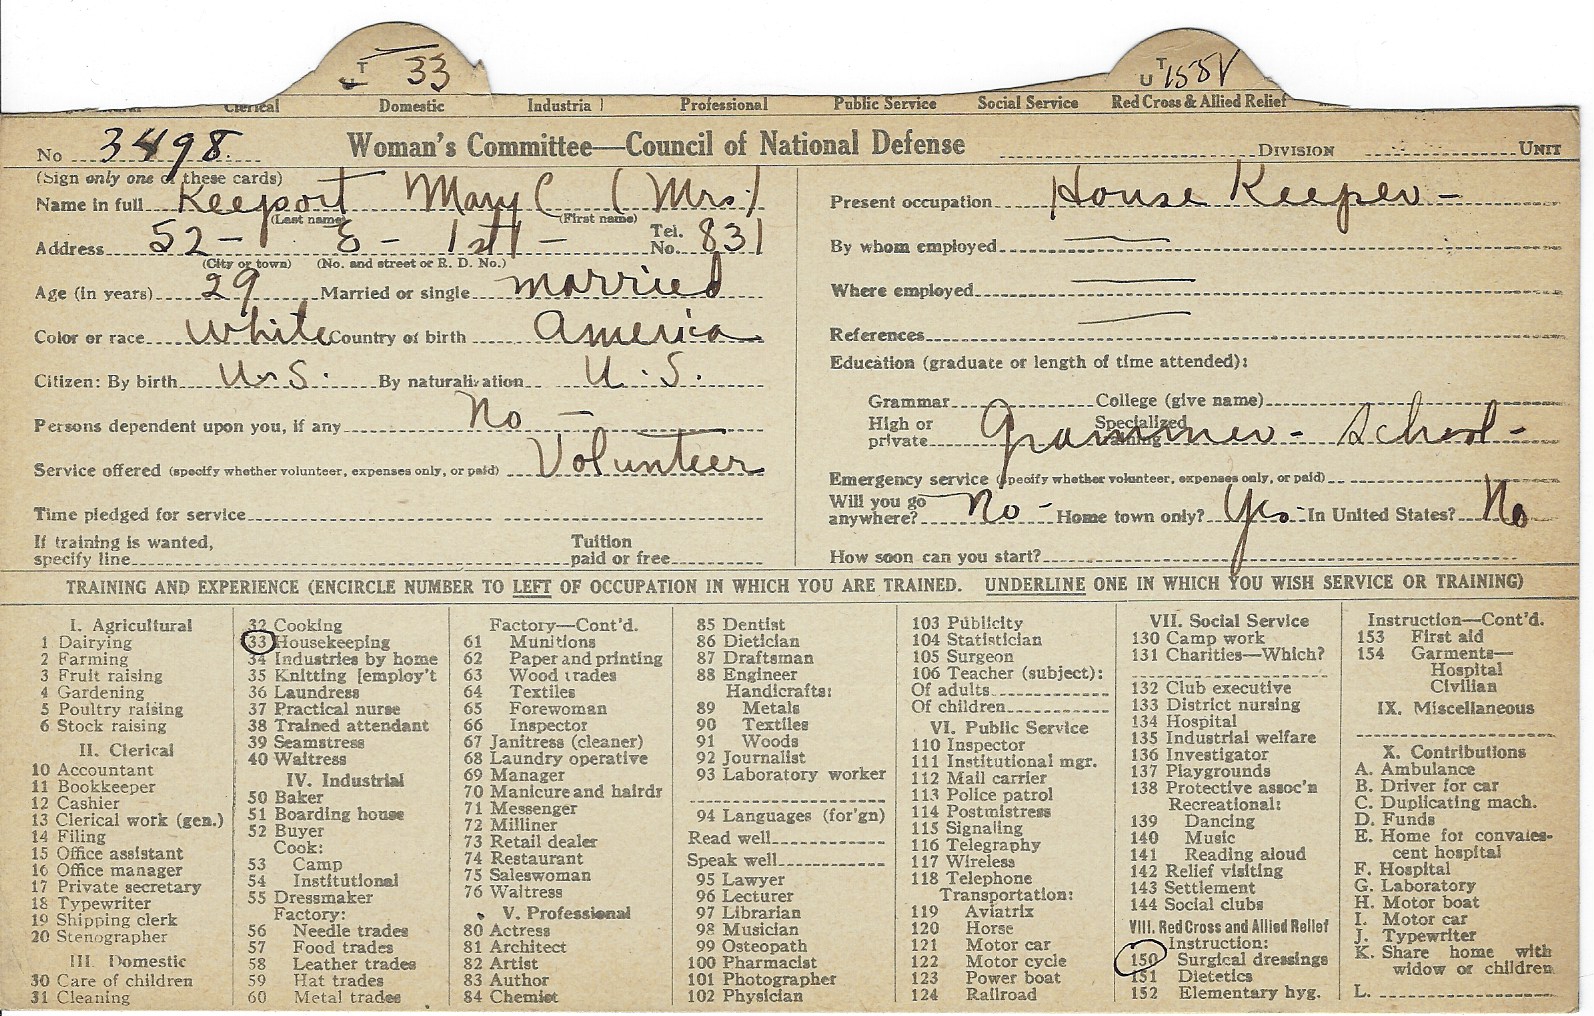 T
U 33
T
U 155V
Clerical Domestic Industrial Professional Public Service Social Service Red Cross & Allied Relief
No 3498. Woman's Committee—Council of National Defense DIVISION UNIT
(Sign only one of these cards)
Name in full Keeport Mary C (Mrs.)
(Last name) (First name)
Address 52 - E - 1st - Tel. No. 831
(City or town) (No. and street or R. D. No.)
Age (in years) 29 Married or single married
Color or race White Country of birth America
Citizen: By birth U.S. By naturalization U.S.
Persons dependent upon you, if any No —
Service offered (specify whether volunteer, expenses only, or paid) Volunteer
Time pledged for service
If training is wanted, specify line
Tuition paid or free
Present occupation House Keeper -
By whom employed —
Where employed —
References —
Education (graduate or length of time attended):
Grammar College (give name)
High or private Specialized training
Grammer - School -
Emergency service (specify whether volunteer, expenses only, or paid)
Will you go anywhere? No - Home town only? Yes - In United States? No
How soon can you start?
TRAINING AND EXPERIENCE (ENCIRCLE NUMBER TO LEFT OF OCCUPATION IN WHICH YOU ARE TRAINED. UNDERLINE ONE IN WHICH YOU WISH SERVICE OR TRAINING)
I. Agricultural
1 Dairying
2 Farming
3 Fruit raising
4 Gardening
5 Poultry raising
6 Stock raising
II. Clerical
10 Accountant
11 Bookkeeper
12 Cashier
13 Clerical work (gen.)
14 Filing
15 Office assistant
16 Office manager
17 Private secretary
18 Typewriter
19 Shipping clerk
20 Stenographer
III. Domestic
30 Care of children
31 Cleaning
32 Cooking
33 Housekeeping
34 Industries by home
35 Knitting [employ't
36 Laundress
37 Practical nurse
38 Trained attendant
39 Seamstress
40 Waitress
IV. Industrial
50 Baker
51 Boarding house
52 Buyer
Cook:
53 Camp
54 Institutional
55 Dressmaker
Factory:
56 Needle trades
57 Food trades
58 Leather trades
59 Hat trades
60 Metal trades
Factory—Cont'd.
61 Munitions
62 Paper and printing
63 Wood trades
64 Textiles
65 Forewoman
66 Inspector
67 Janitress (cleaner)
68 Laundry operative
69 Manager
70 Manicure and hairdr
71 Messenger
72 Milliner
73 Retail dealer
74 Restaurant
75 Saleswoman
76 Waitress
V. Professional
80 Actress
81 Architect
82 Artist
83 Author
84 Chemist
85 Dentist
86 Dietician
87 Draftsman
88 Engineer
Handicrafts:
89 Metals
90 Textiles
91 Woods
92 Journalist
93 Laboratory worker
94 Languages (for'gn)
Read well
Speak well
95 Lawyer
96 Lecturer
97 Librarian
98 Musician
99 Osteopath
100 Pharmacist
101 Photographer
102 Physician
103 Publicity
104 Statistician
105 Surgeon
106 Teacher (subject):
Of adults
Of children
VI. Public Service
110 Inspector
111 Institutional mgr.
112 Mail carrier
113 Police patrol
114 Postmistress
115 Signaling
116 Telegraphy
117 Wireless
118 Telephone
Transportation:
119 Aviatrix
120 Horse
121 Motor car
122 Motor cycle
123 Power boat
124 Railroad
VII. Social Service
130 Camp work
131 Charities—Which?
132 Club executive
133 District nursing
134 Hospital
135 Industrial welfare
136 Investigator
137 Playgrounds
138 Protective assoc'n
Recreational:
139 Dancing
140 Music
141 Reading aloud
142 Relief visiting
143 Settlement
144 Social clubs
VIII. Red Cross and Allied Relief
Instruction:
150 Surgical dressings
151 Dietetics
152 Elementary hyg.
Instruction—Cont'd.
153 First aid
154 Garments—
Hospital
Civilian
IX. Miscellaneous
X. Contributions
A. Ambulance
B. Driver for car
C. Duplicating mach.
D. Funds
E. Home for convales-
cent hospital
F. Hospital
G. Laboratory
H. Motor boat
I. Motor car
J. Typewriter
K. Share home with
widow or children
L.